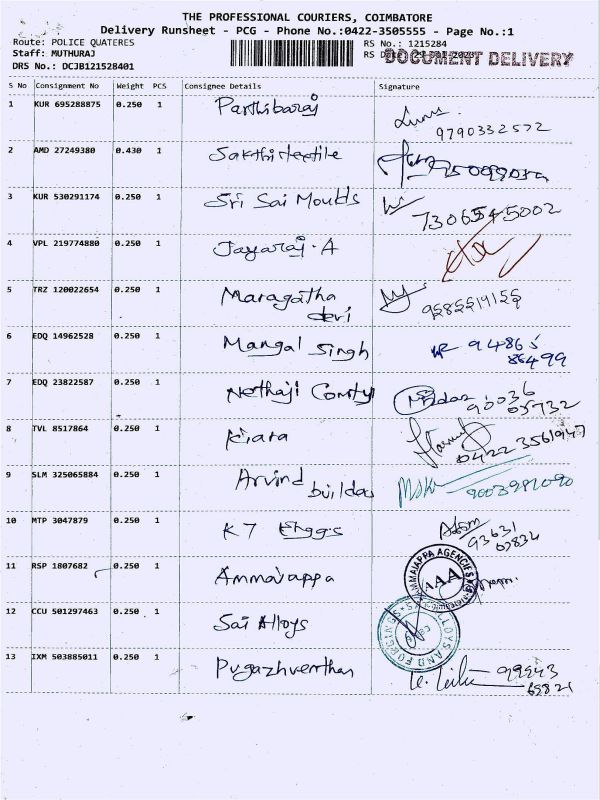 THE PROFESSIONAL COURIERS, COIMBATORE
Delivery Runsheet - PCG - Phone No.:0422-3505555 - Page No.:1
Route: POLICE QUATERES
RS No.: 1215284
Staff: MUTHURAJ
RS
DOCUMENT DELIVERY
DRS No.: DCJB121528401
S No Consignment No Weight PCS Consignee Details Signature
1 KUR 695288875 0.250 1 Parthibaraj
9790332572
2 AMD 27249380 0.430 1 Sakthi textile
3 KUR 530291174 0.250 1 Sri Sai Moulds
7306545002
4 VPL 219774880 0.250 1 Jayaraj.A
5 TRZ 120022654 0.250 1 Maragatha
devi
9585519155
6 EDQ 14962528 0.250 1 Mangal Singh 94865
86499
7 EDQ 23822587 0.250 1 Nethaji 90036
05732
8 TVL 8517864 0.250 1 Kiara
0422 3561947
9 SLM 325065884 0.250 1 Arvind
9003981090
10 MTP 3047879 0.250 1 K7 Enggs
93631
07834
11 RSP 1807682 0.250 1 Ammaiappa
AMMAIAPPA AGENCIES
AAA
12 CCU 501297463 0.250 1 Sai Alloys
ALLOYS AND FORGINGS
13 IXM 503885011 0.250 1 Pugazhventhan
99943
65821